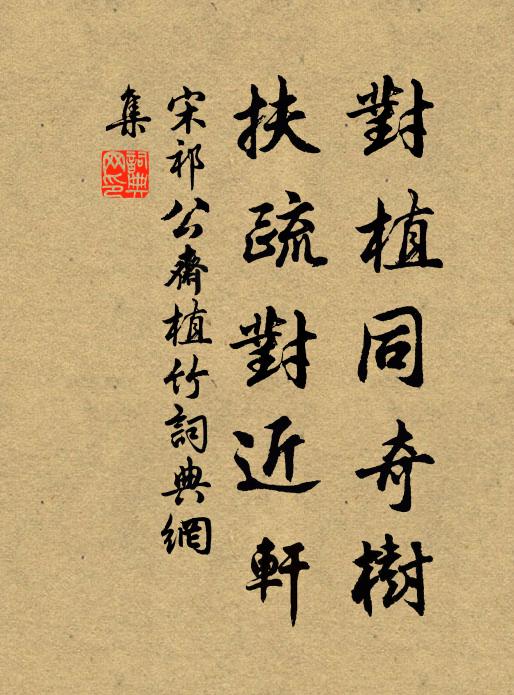 對植同奇樹
扶疏對近軒
宋祁公齋植竹詞典網
集
詞典网印